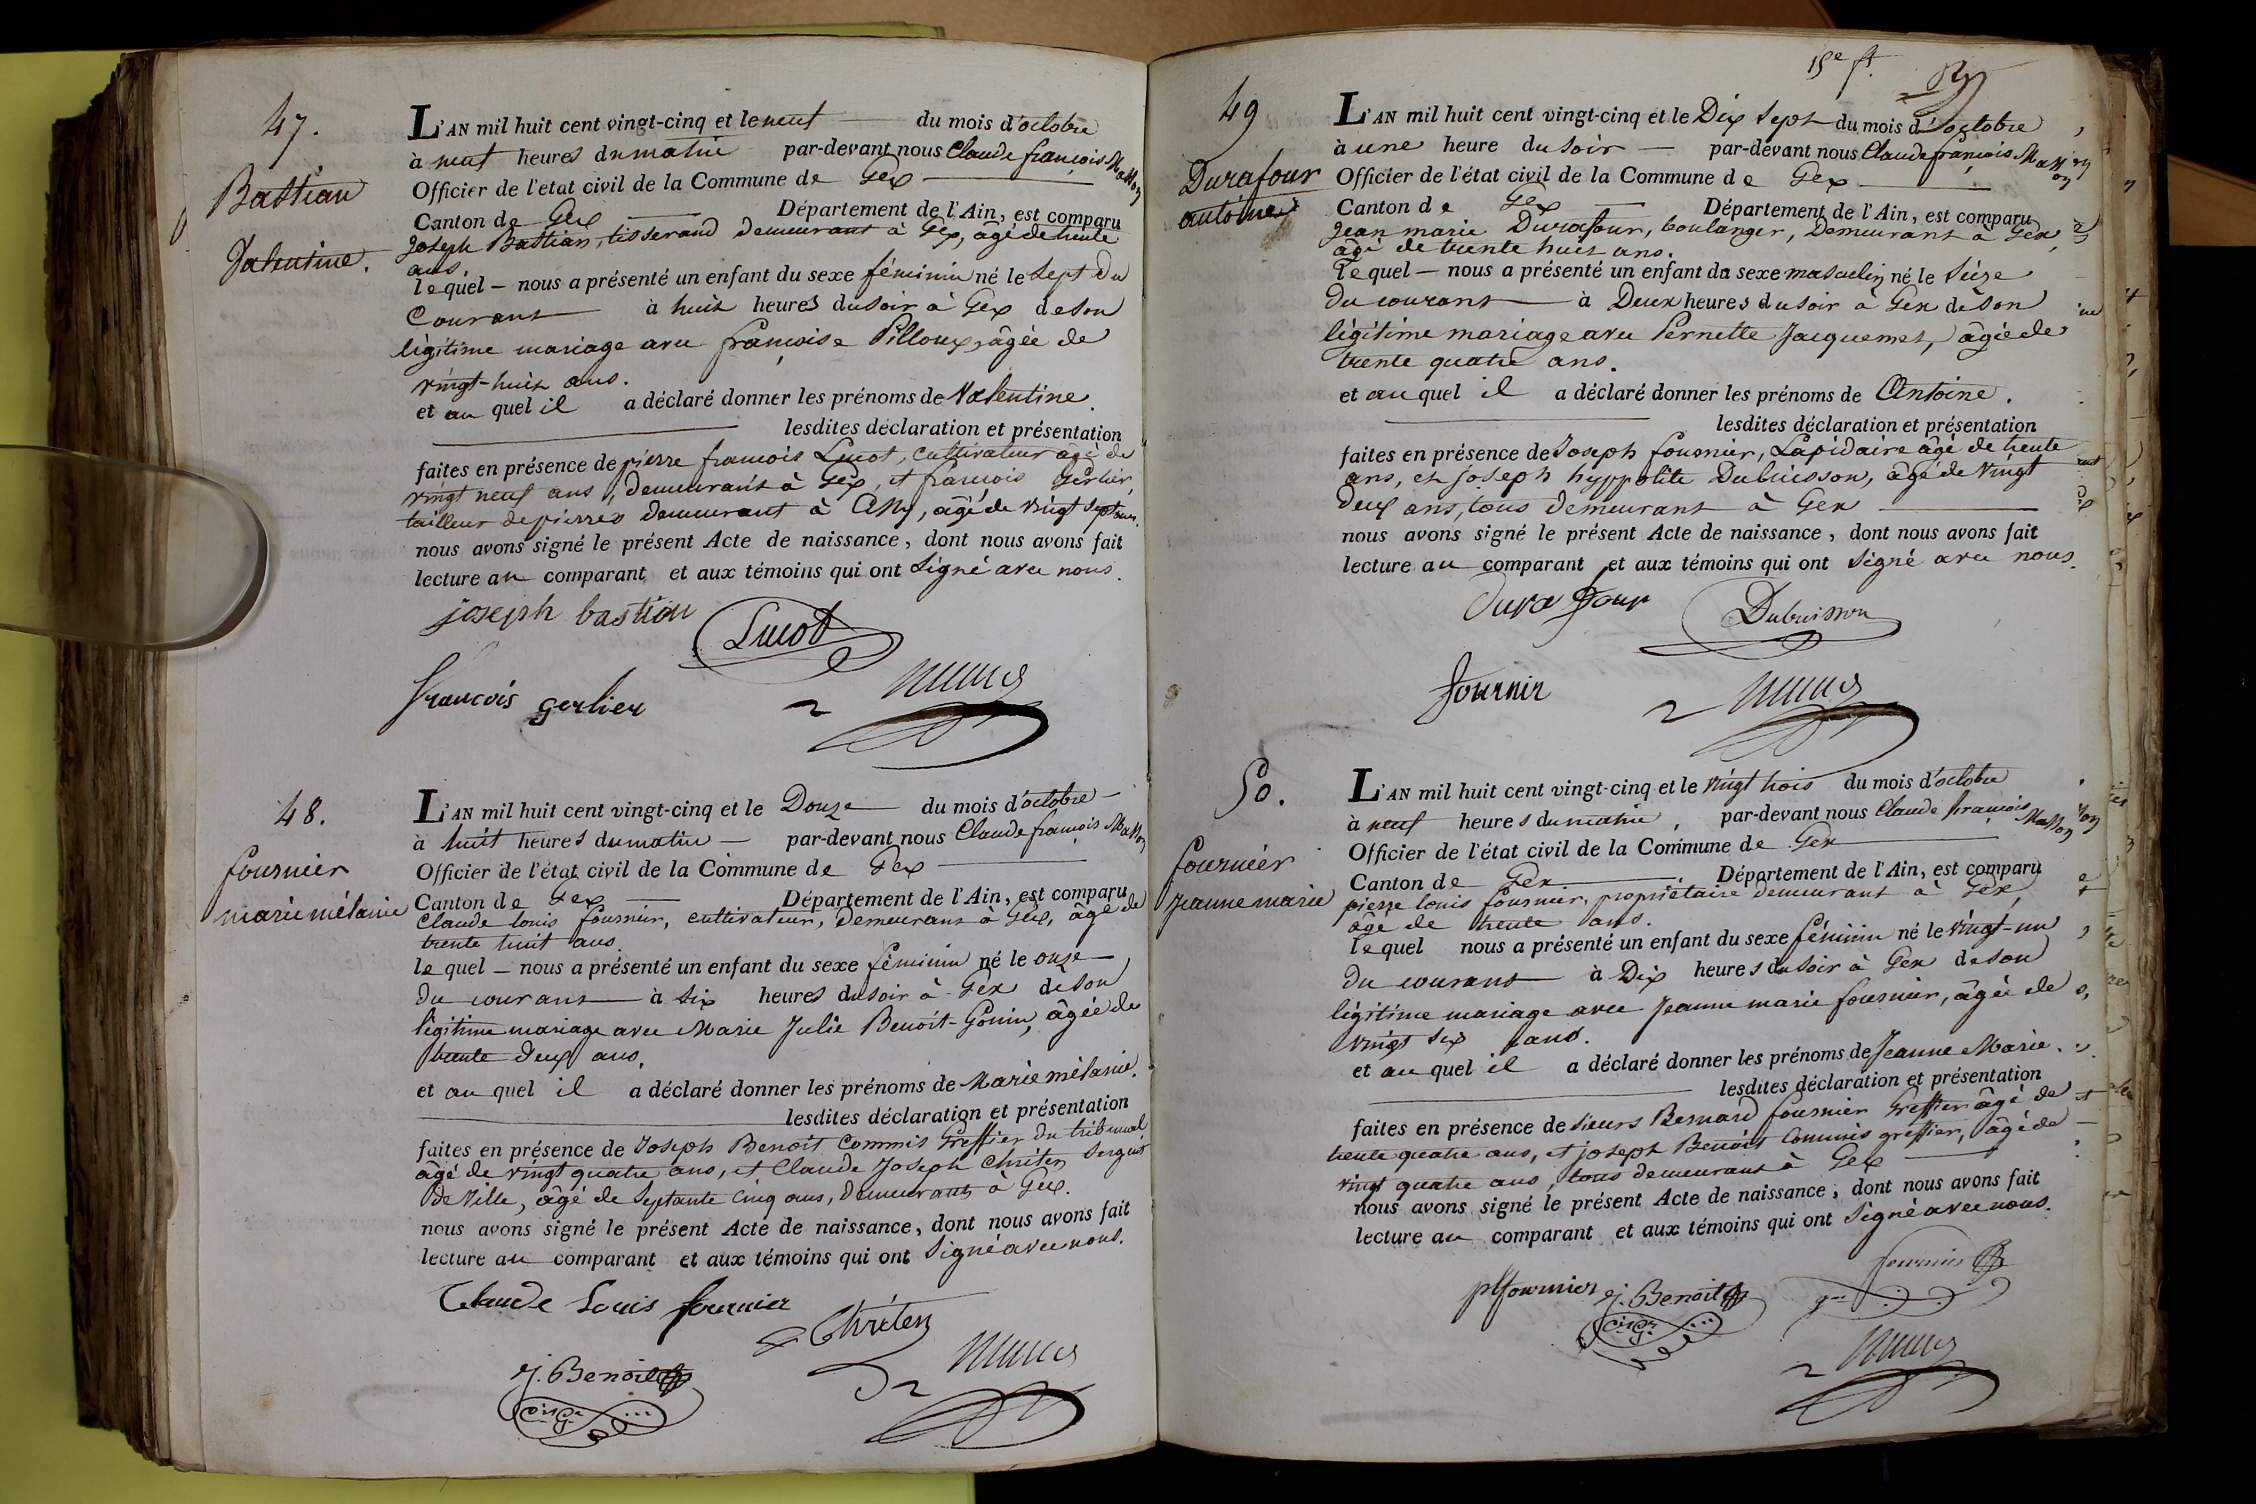 47.
Bastian
Valentine.
L'AN mil huit cent vingt-cinq et le neuf du mois d'octobre
à neuf heures du matin par-devant nous Claude françois Masson
Officier de l'etat civil de la Commune de Gex
Canton de Gex Département de l'Ain, est comparu
Joseph Bastian, tisserand demeurant à Gex, âgé de trente
ans.
lequel – nous a présenté un enfant du sexe féminin né le Sept du
Courant à huit heures du soir à Gex de son
légitime mariage avec françoise Pilloux, âgée de
vingt-huit ans.
et au quel il a déclaré donner les prénoms de Valentine.
lesdites déclaration et présentation
faites en présence de pierre francois Lucot, cultivateur âgé de
vingt neuf ans, demeurant à Gex, et françois Gerlier,
tailleur de pierres demeurant à , âgé de vingt Sept ans.
nous avons signé le présent Acte de naissance, dont nous avons fait
lecture au comparant et aux témoins qui ont Signé avec nous.
joseph bastian
Lucot
francois gerlier
48.
fournier
marie mélanie
L'AN mil huit cent vingt-cinq et le Douze du mois d'octobre
à huit heures du matin par-devant nous Claude françois Masson
Officier de l'état civil de la Commune de Gex
Canton de Gex Département de l'Ain, est comparu
Claude louis fournier, cultivateur, demeurant à Gex, âgé de
trente huit ans.
lequel – nous a présenté un enfant du sexe féminin né le onze
du courant à six heures du soir à Gex de son
légitime mariage avec Marie Julie Benoit-Gonin, âgée de
trente deux ans.
et au quel il a déclaré donner les prénoms de Marie mélanie.
lesdites déclaration et présentation
faites en présence de Joseph Benoit Commis Greffier du tribunal
âgé de vingt quatre ans, et Claude Joseph Chriten Sergent
de Ville, âgé de Septante Cinq ans, demeurants à Gex.
nous avons signé le présent Acte de naissance, dont nous avons fait
lecture au comparant et aux témoins qui ont Signé avec nous.
Claude Louis fournier
Chriten
J. Benoit
15e ft.
49
Durafour
antoine
L'AN mil huit cent vingt-cinq et le Dix Sept du mois d'octobre
à une heure du Soir par-devant nous Claude françois Masson
Officier de l'état civil de la Commune de Gex
Canton de Gex Département de l'Ain, est comparu
Jean marie Durafour, boulanger, Demeurant à Gex,
âgé de trente huit ans.
lequel – nous a présenté un enfant du sexe masculin né le Seize
du courant à Deux heures du soir à Gex de son
légitime mariage avec Pernette Jacquemet, âgée de
trente quatre ans.
et au quel il a déclaré donner les prénoms de Antoine.
lesdites déclaration et présentation
faites en présence de Joseph fournier, Lapidaire âgé de trente
ans, et joseph hyppolite Dubuisson, âgé de vingt
deux ans, tous demeurant à Gex
nous avons signé le présent Acte de naissance, dont nous avons fait
lecture au comparant et aux témoins qui ont Signé avec nous.
Durafour
Dubuisson
fournier
50.
fournier
Jeanne marie
L'AN mil huit cent vingt-cinq et le vingt trois du mois d'octobre
à neuf heures du matin, par-devant nous Claude françois Masson
Officier de l'état civil de la Commune de Gex
Canton de Gex Département de l'Ain, est comparu
pierre louis fournier, propriétaire demeurant à Gex,
âgé de trente ans.
lequel nous a présenté un enfant du sexe féminin né le vingt-un
du courant à Dix heures du soir à Gex de son
légitime mariage avec Jeanne marie fournier, âgée de
vingt six ans.
et au quel il a déclaré donner les prénoms de Jeanne Marie.
lesdites déclaration et présentation
faites en présence de sieurs Bernard fournier Greffier âgé de
trente quatre ans, et joseph Benoit Commis greffier, âgé de
vingt quatre ans, tous demeurant à Gex
nous avons signé le présent Acte de naissance, dont nous avons fait
lecture au comparant et aux témoins qui ont Signé avec nous.
fournier
plfournier
J. Benoit